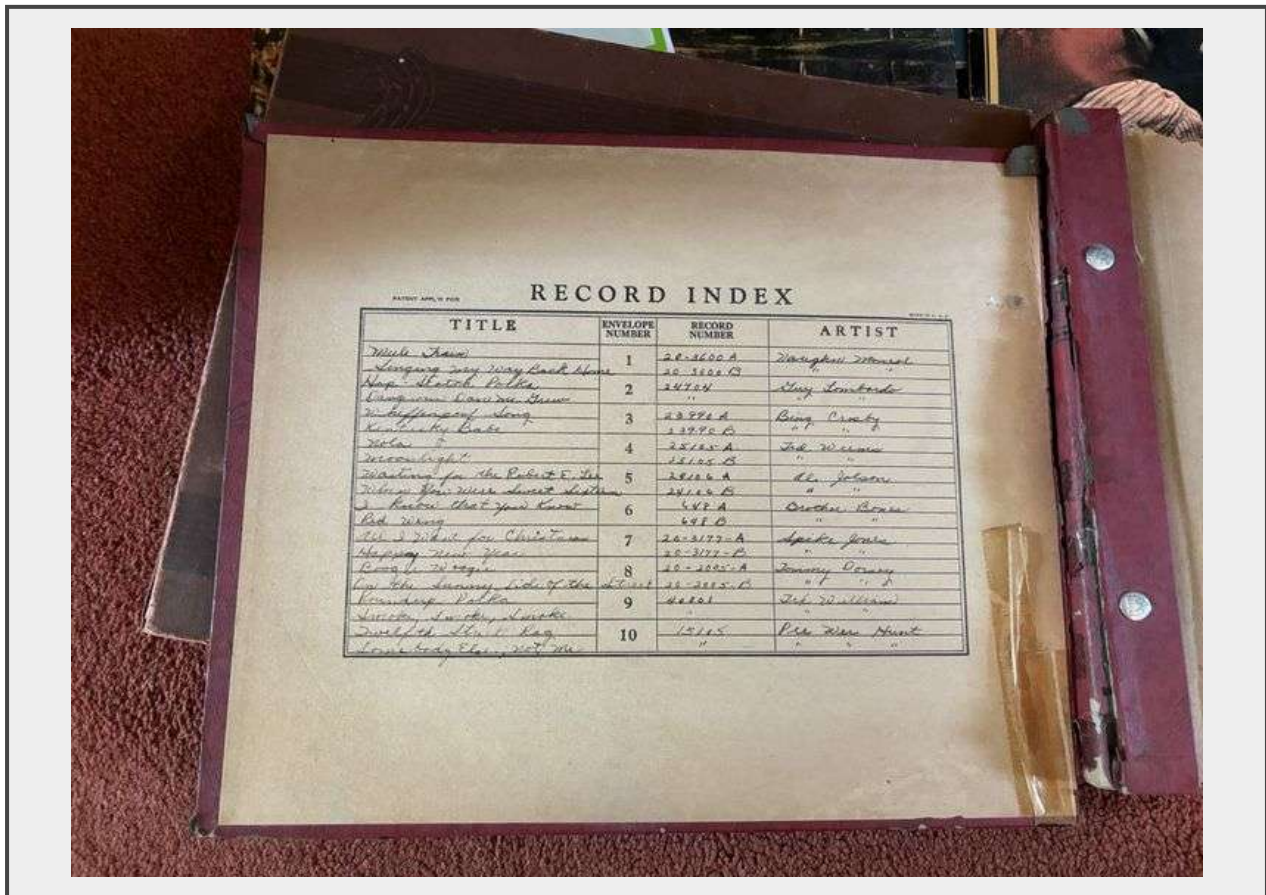 PATENT APPL'D FOR
RECORD INDEX
TITLE ENVELOPE NUMBER RECORD NUMBER ARTIST
Mule Train 1 20-3600 A Vaughn Monroe
Singing My Way Back Home 20 3600 B " "
Hop Scotch Polka 2 24704 Guy Lombardo
Dangerous Dan Mc Grew " " "
Whiffenpoof Song 3 23990 A Bing Crosby
Kentucky Babe 23990 B " "
Nola 4 25105 A Ted Weems
Moonlight 25105 B " "
Waiting for the Robert E. Lee 5 24106 A Al Jolson
When You Were Sweet Sixteen 24106 B " "
I Know that You Know 6 648 A Brother Bones
Red Wing 648 B " "
All I Want for Christmas 7 20-3177-A Spike Jones
Happy New Year 20-3177-B " "
Boogie Woogie 8 20-2005-A Tommy Dorsey
On the Sunny Side of the Street 20-2005-B " "
Roundup Polka 9 Tex Williams
Smoke, Smoke, Smoke "
Twelfth Street Rag 10 15105 Pee Wee Hunt
Somebody Else, Not Me " " " "